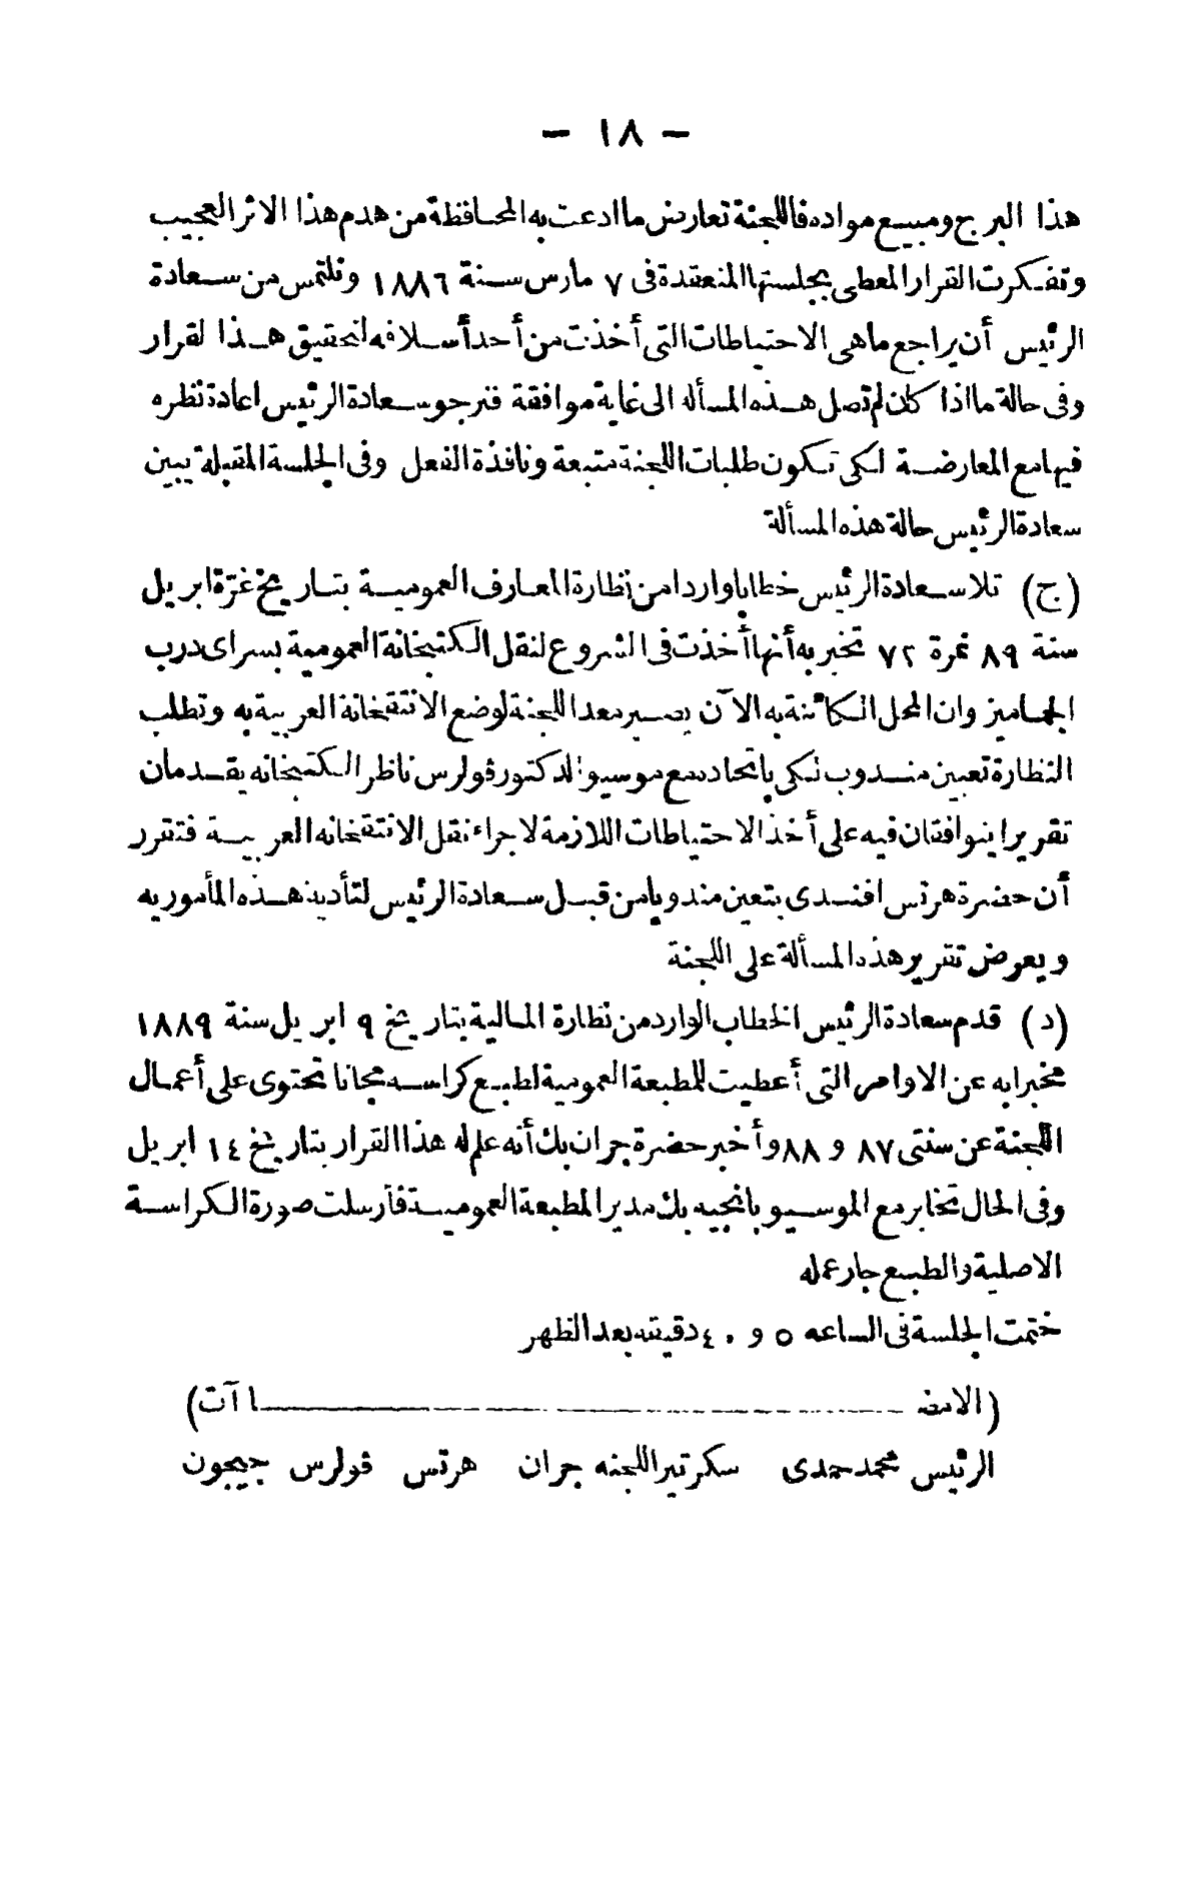 — ١٨ —
هذا البرج ومبيع مواده فاللجنة تعارض ما ادعت به المحافظة من هدم هذا الاثر العجيب
وتفكرت القرار المعطى بجلستها المنعقدة فى ٧ مارس سنة ١٨٨٦ وتلتمس من سعادة
الرئيس أن يراجع ماهى الاحتياطات التى أخذت من أحد أسلافه لتحقيق هذا لقرار
وفى حالة ما اذا كان لم تصل هذه المسأله الى غاية موافقة فترجو سعادة الرئيس اعادة نظره
فيها مع المعارضة لكى تكون طلبات اللجنة متبعة ونافذة الفعل وفى الجلسة المقبلة يبين
سعادة الرئيس حالة هذه المسألة
(ج) تلا سعادة الرئيس خطابا واردا من نظارة المعارف العمومية بتاريخ غرّة ابريل
سنة ٨٩ نمرة ٧٢ تخبر به أنها أخذت فى الشروع لنقل الكتبخانة العمومية بسراى درب
الجماميز وان المحل الكائنة به الآن يصير معدا للجنة لوضع الانتقخانة العربية به وتطلب
النظارة تعيين مندوب لكى باتحاده مع موسيو الدكتور ڤولرس ناظر الكتبخانه يقدمان
تقريرا يتوافقان فيه على أخذ الاحتياطات اللازمة لاجراء نقل الانتقخانه العربية فتقرر
أن حضرة هرتس افندى يتعين مندوبا من قبل سعادة الرئيس لتأدية هذه المأموريه
ويعرض تقرير هذه المسألة على اللجنة
(د) قدم سعادة الرئيس الخطاب الوارد من نظارة المالية بتاريخ ٩ ابريل سنة ١٨٨٩
مخبرا به عن الاوامر التى أعطيت للمطبعة العمومية لطبع كراسه مجانا تحتوى على أعمال
اللجنة عن سنتى ٨٧ و ٨٨ وأخبر حضرة جران بك أنه علم له هذا القرار بتاريخ ١٤ ابريل
وفى الحال تخابر مع الموسيو بانجيه بك مدير المطبعة العمومية فأرسلت صورة الكراسة
الاصلية والطبع جار عمله
ختمت الجلسة فى الساعه ٥ و ٤٠ دقيقه بعد الظهر
(الامضاآت)
الرئيس محمد حمدى سكرتير اللجنه جران هرتس ڤولرس جيجون